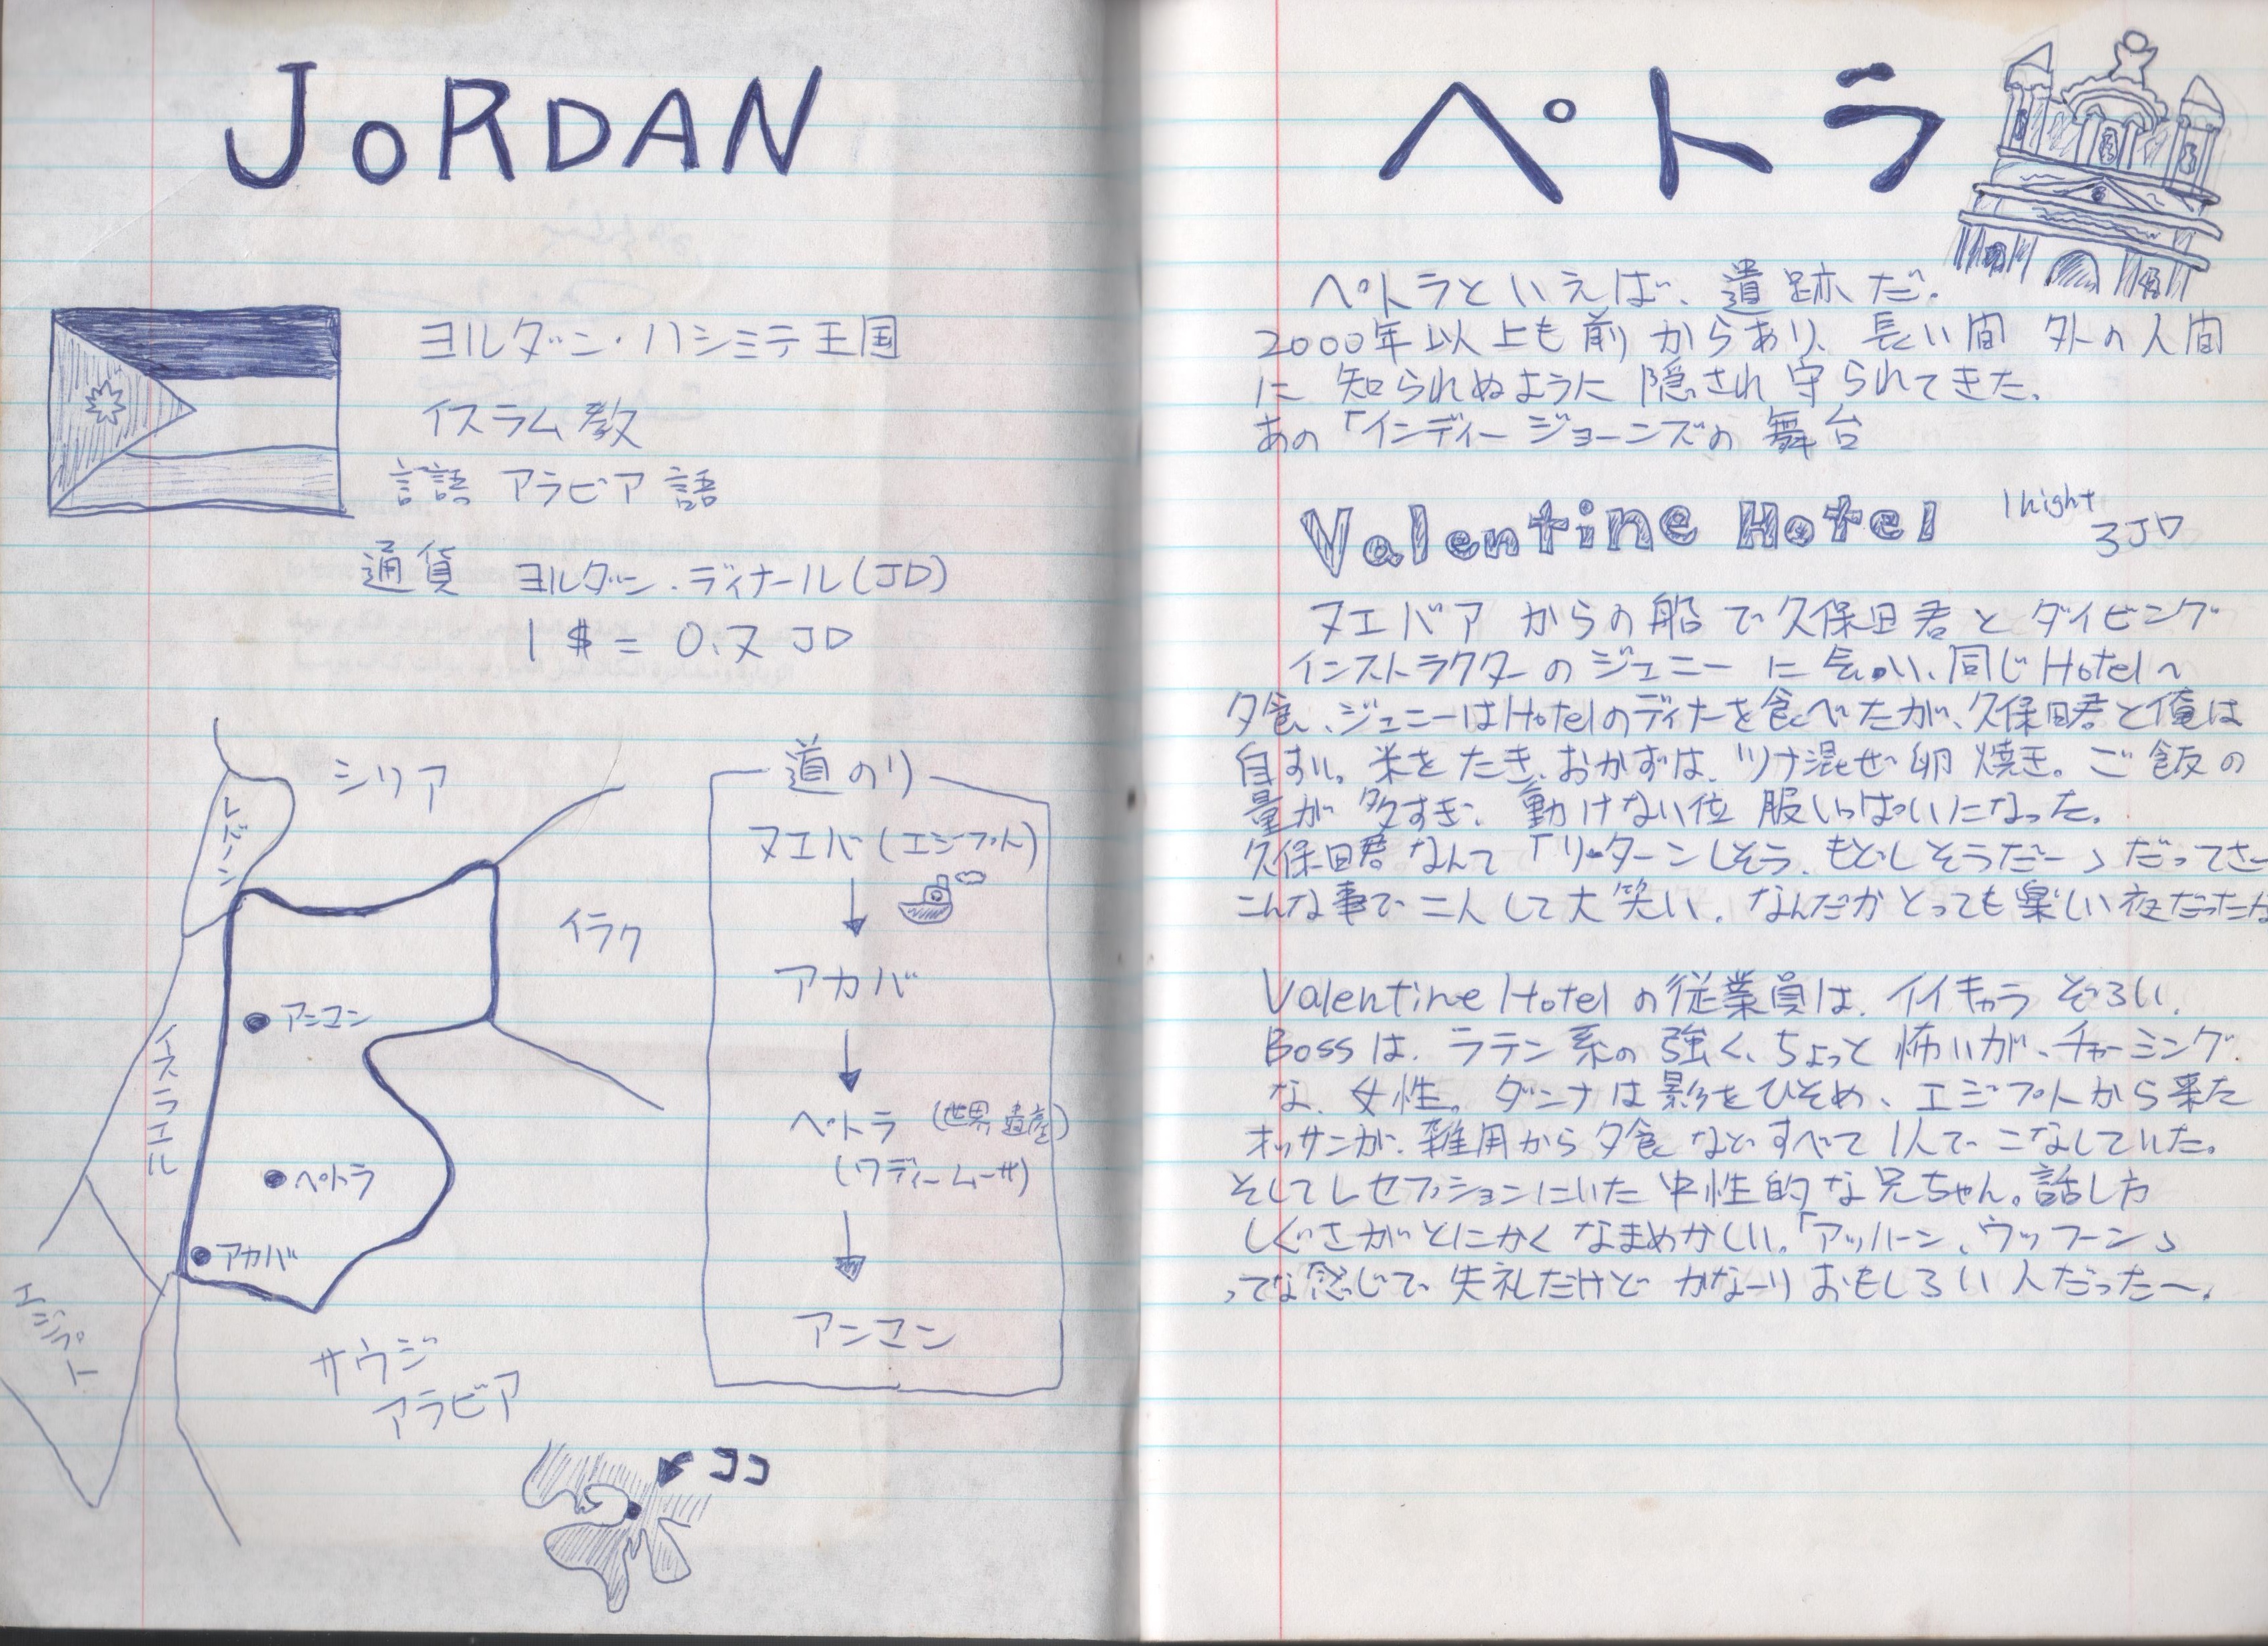 JoRDAN
ヨルダン・ハシミテ王国
イスラム教
言語 アラビア語
通貨 ヨルダン・ディナール(JD)
1$=0.7JD
シリア
レバノン
イラク
アンマン
イスラエル
ペトラ
アカバ
エジプト
サウジ
アラビア
ココ
道のり
ヌエバ(エジプト)
アカバ
ペトラ(世界遺産)
(ワディームーサ)
アンマン
ペトラ
ペトラといえば、遺跡だ。
2000年以上も前からあり、長い間 外の人間
に 知られぬように 隠され 守られてきた。
あの「インディージョーンズの 舞台
Valentine Hotel 1 night
3JD
ヌエバア からの船で久保田君とダイビング
インストラクターのジェニーに会い、同じHotelへ
夕食、ジェニーはHotelのディナーを食べたが、久保田君と俺は
自すい。米をたき、おかずは、ツナ混ぜ卵焼き。ご飯の
量が多すぎ、動けない位 服いっぱいになった。
久保田君なんて「リターンしそう、もどしそうだー」だってさー
こんな事で二人して大笑い。なんだかとっても楽しい夜だったな
Valentine Hotelの従業員は、イイキャラぞろい。
Bossは、ラテン系の強く、ちょっと怖いが、チャーミング
な、女性。ダンナは影をひそめ、エジプトから来た
オッサンが、雑用から夕食などすべて1人でこなしていた。
そしてレセプションにいた中性的な兄ちゃん。話し方
しぐさがとにかくなまめかしい。「アッハーン、ウッフーン」
ってな感じで、失礼だけど かなーりおもしろい人だった〜。